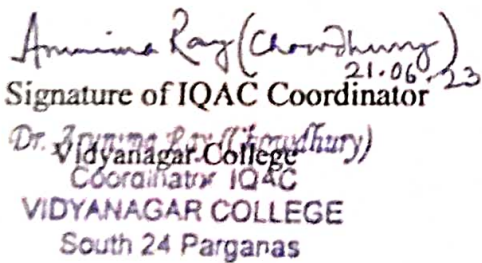 Arunima Ray (Chowdhury)
21.06.23
Signature of IQAC Coordinator
Dr. Arunima Ray (Chowdhury)
Vidyanagar College
Coordinator IQAC
VIDYANAGAR COLLEGE
South 24 Parganas